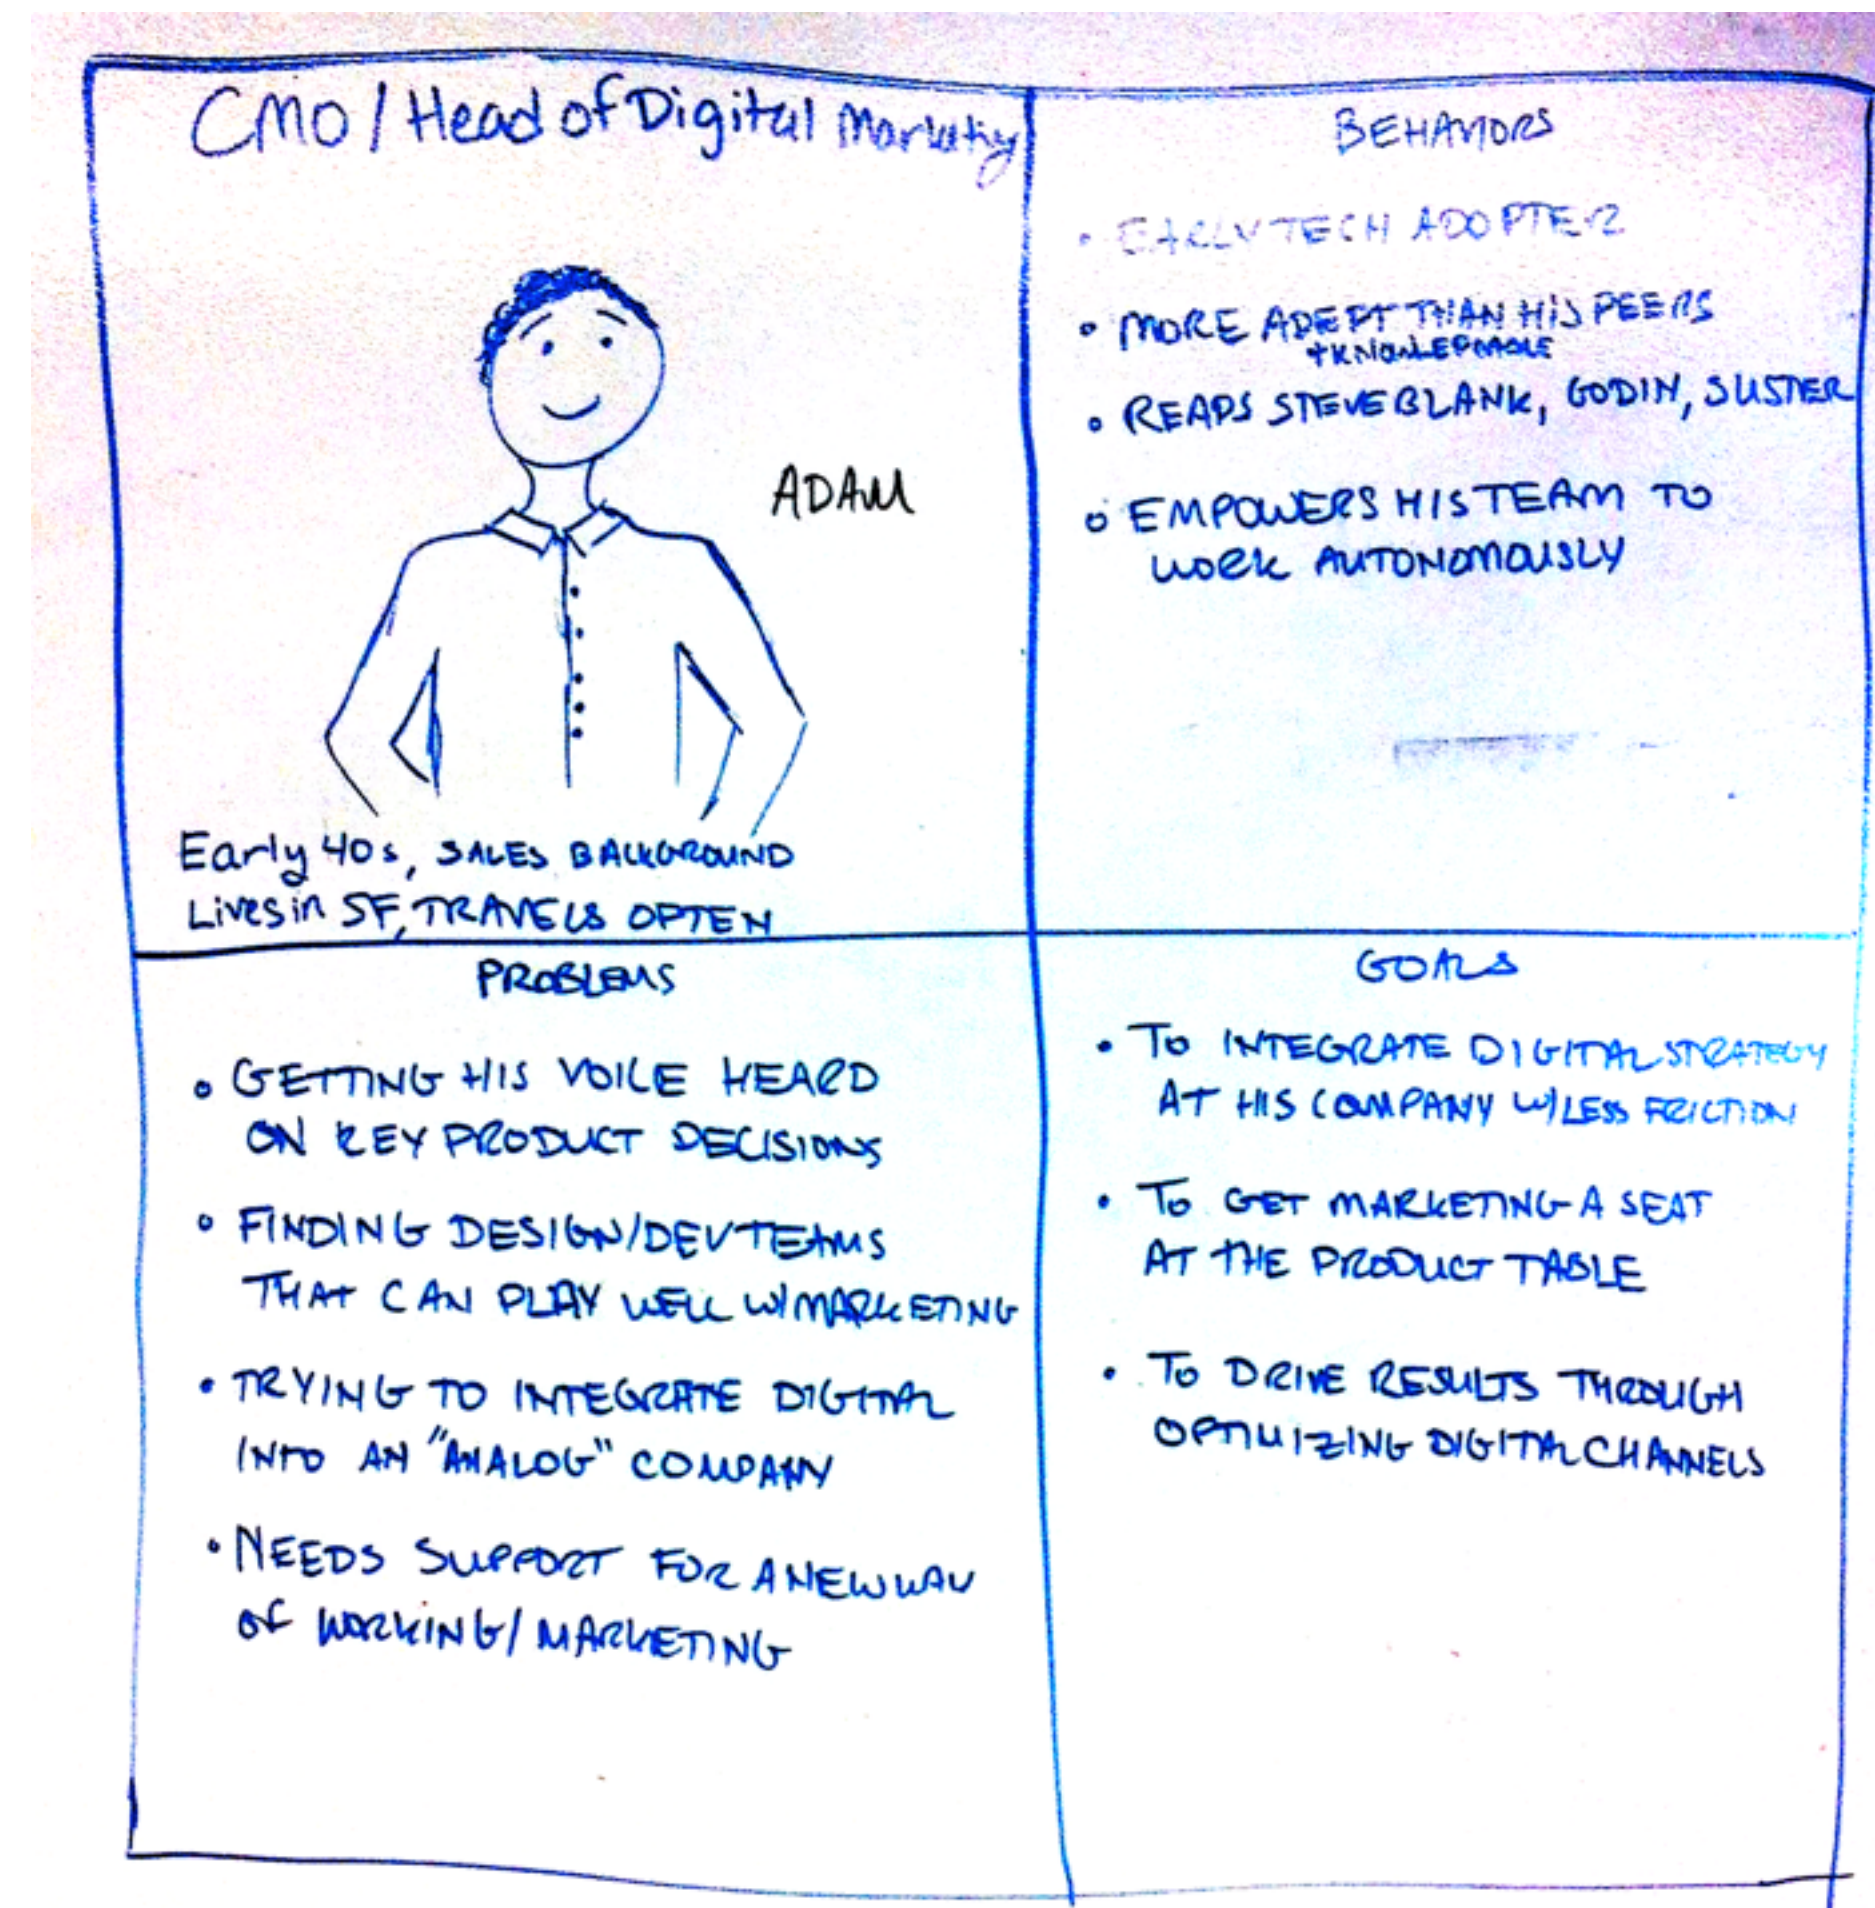 CMO / Head of Digital Marketing
ADAM
Early 40s, SALES BACKGROUND
Lives in SF, TRAVELS OFTEN
BEHAVIORS
• EARLY TECH ADOPTER
• MORE ADEPT THAN HIS PEERS
+ KNOWLEDGABLE
• READS STEVE BLANK, GODIN, SUSTER
• EMPOWERS HIS TEAM TO
WORK AUTONOMOUSLY
PROBLEMS
• GETTING HIS VOICE HEARD
ON KEY PRODUCT DECISIONS
• FINDING DESIGN/DEV TEAMS
THAT CAN PLAY WELL W/MARKETING
• TRYING TO INTEGRATE DIGITAL
INTO AN "ANALOG" COMPANY
• NEEDS SUPPORT FOR A NEW WAY
OF WORKING/MARKETING
GOALS
• TO INTEGRATE DIGITAL STRATEGY
AT HIS COMPANY W/LESS FRICTION
• TO GET MARKETING A SEAT
AT THE PRODUCT TABLE
• TO DRIVE RESULTS THROUGH
OPTIMIZING DIGITAL CHANNELS